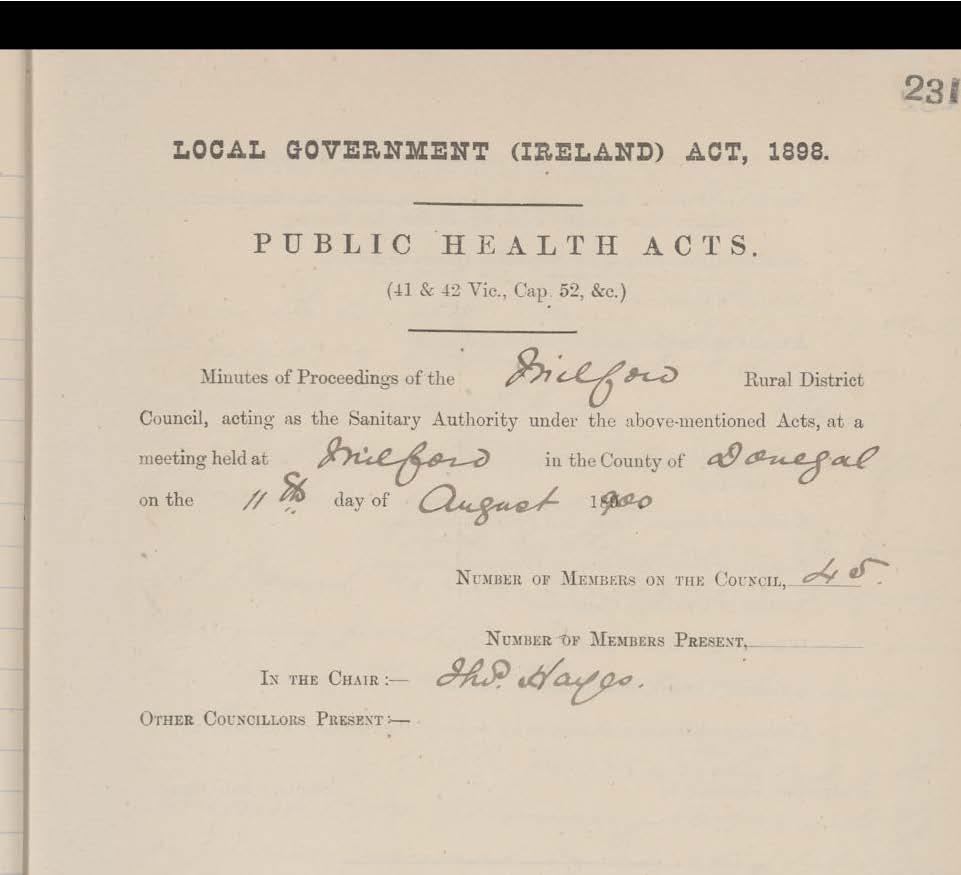 231
LOCAL GOVERNMENT (IRELAND) ACT, 1898.
PUBLIC HEALTH ACTS.
(41 & 42 Vic., Cap. 52, &c.)
Minutes of Proceedings of the Milford Rural District
Council, acting as the Sanitary Authority under the above-mentioned Acts, at a
meeting held at Milford in the County of Donegal
on the 11th day of August 1900
NUMBER OF MEMBERS ON THE COUNCIL, 45.
NUMBER OF MEMBERS PRESENT,
IN THE CHAIR:— Thos. Hayes.
OTHER COUNCILLORS PRESENT:—